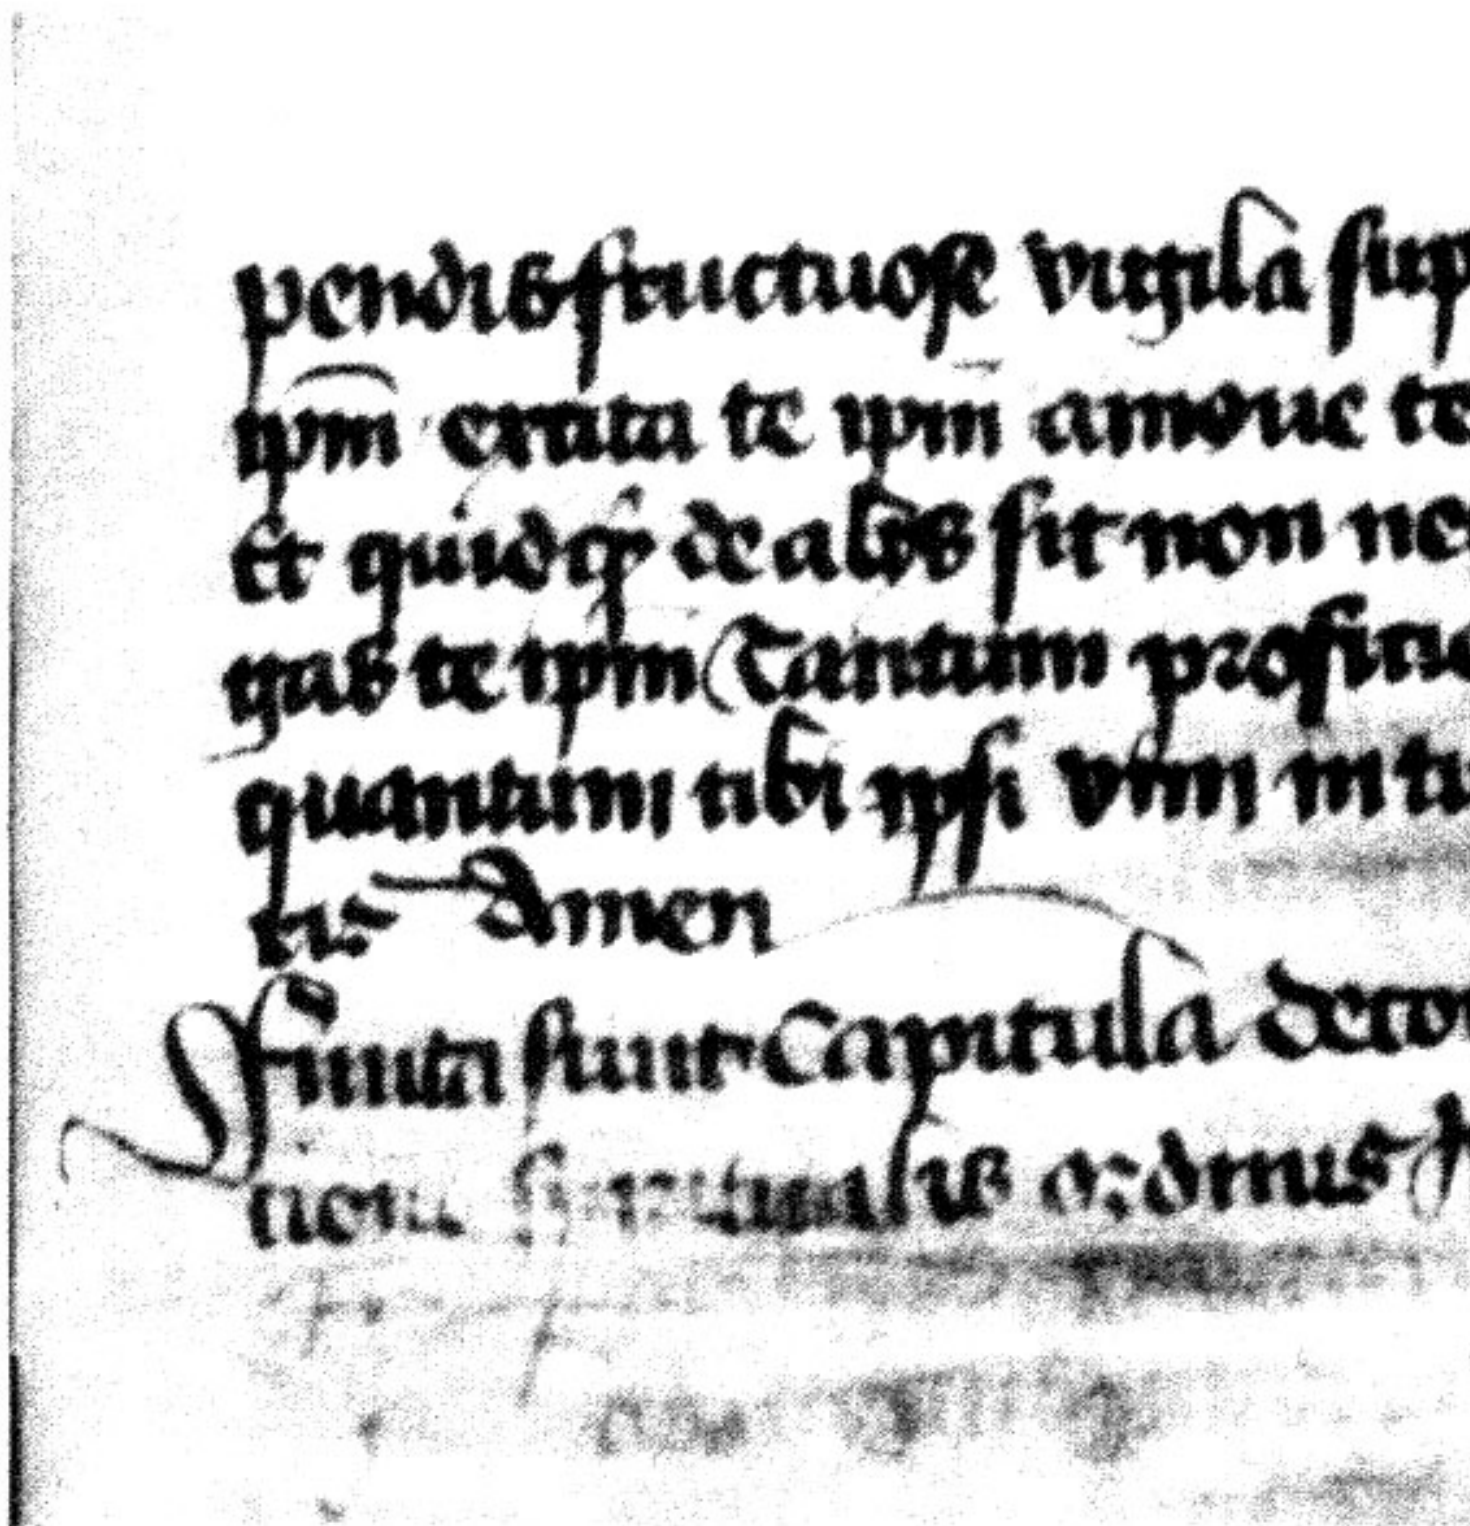 pendis fructuose vigila sup
ip̄m excita te ip̄m amone te
Et quidq̃ de alijs sit non ne
gas te ip̄m Tantum profitie
quantum tibi ipsi vim intu
tis Amen
ffinita sunt Capitula deco
tioni spiritualis ordinis